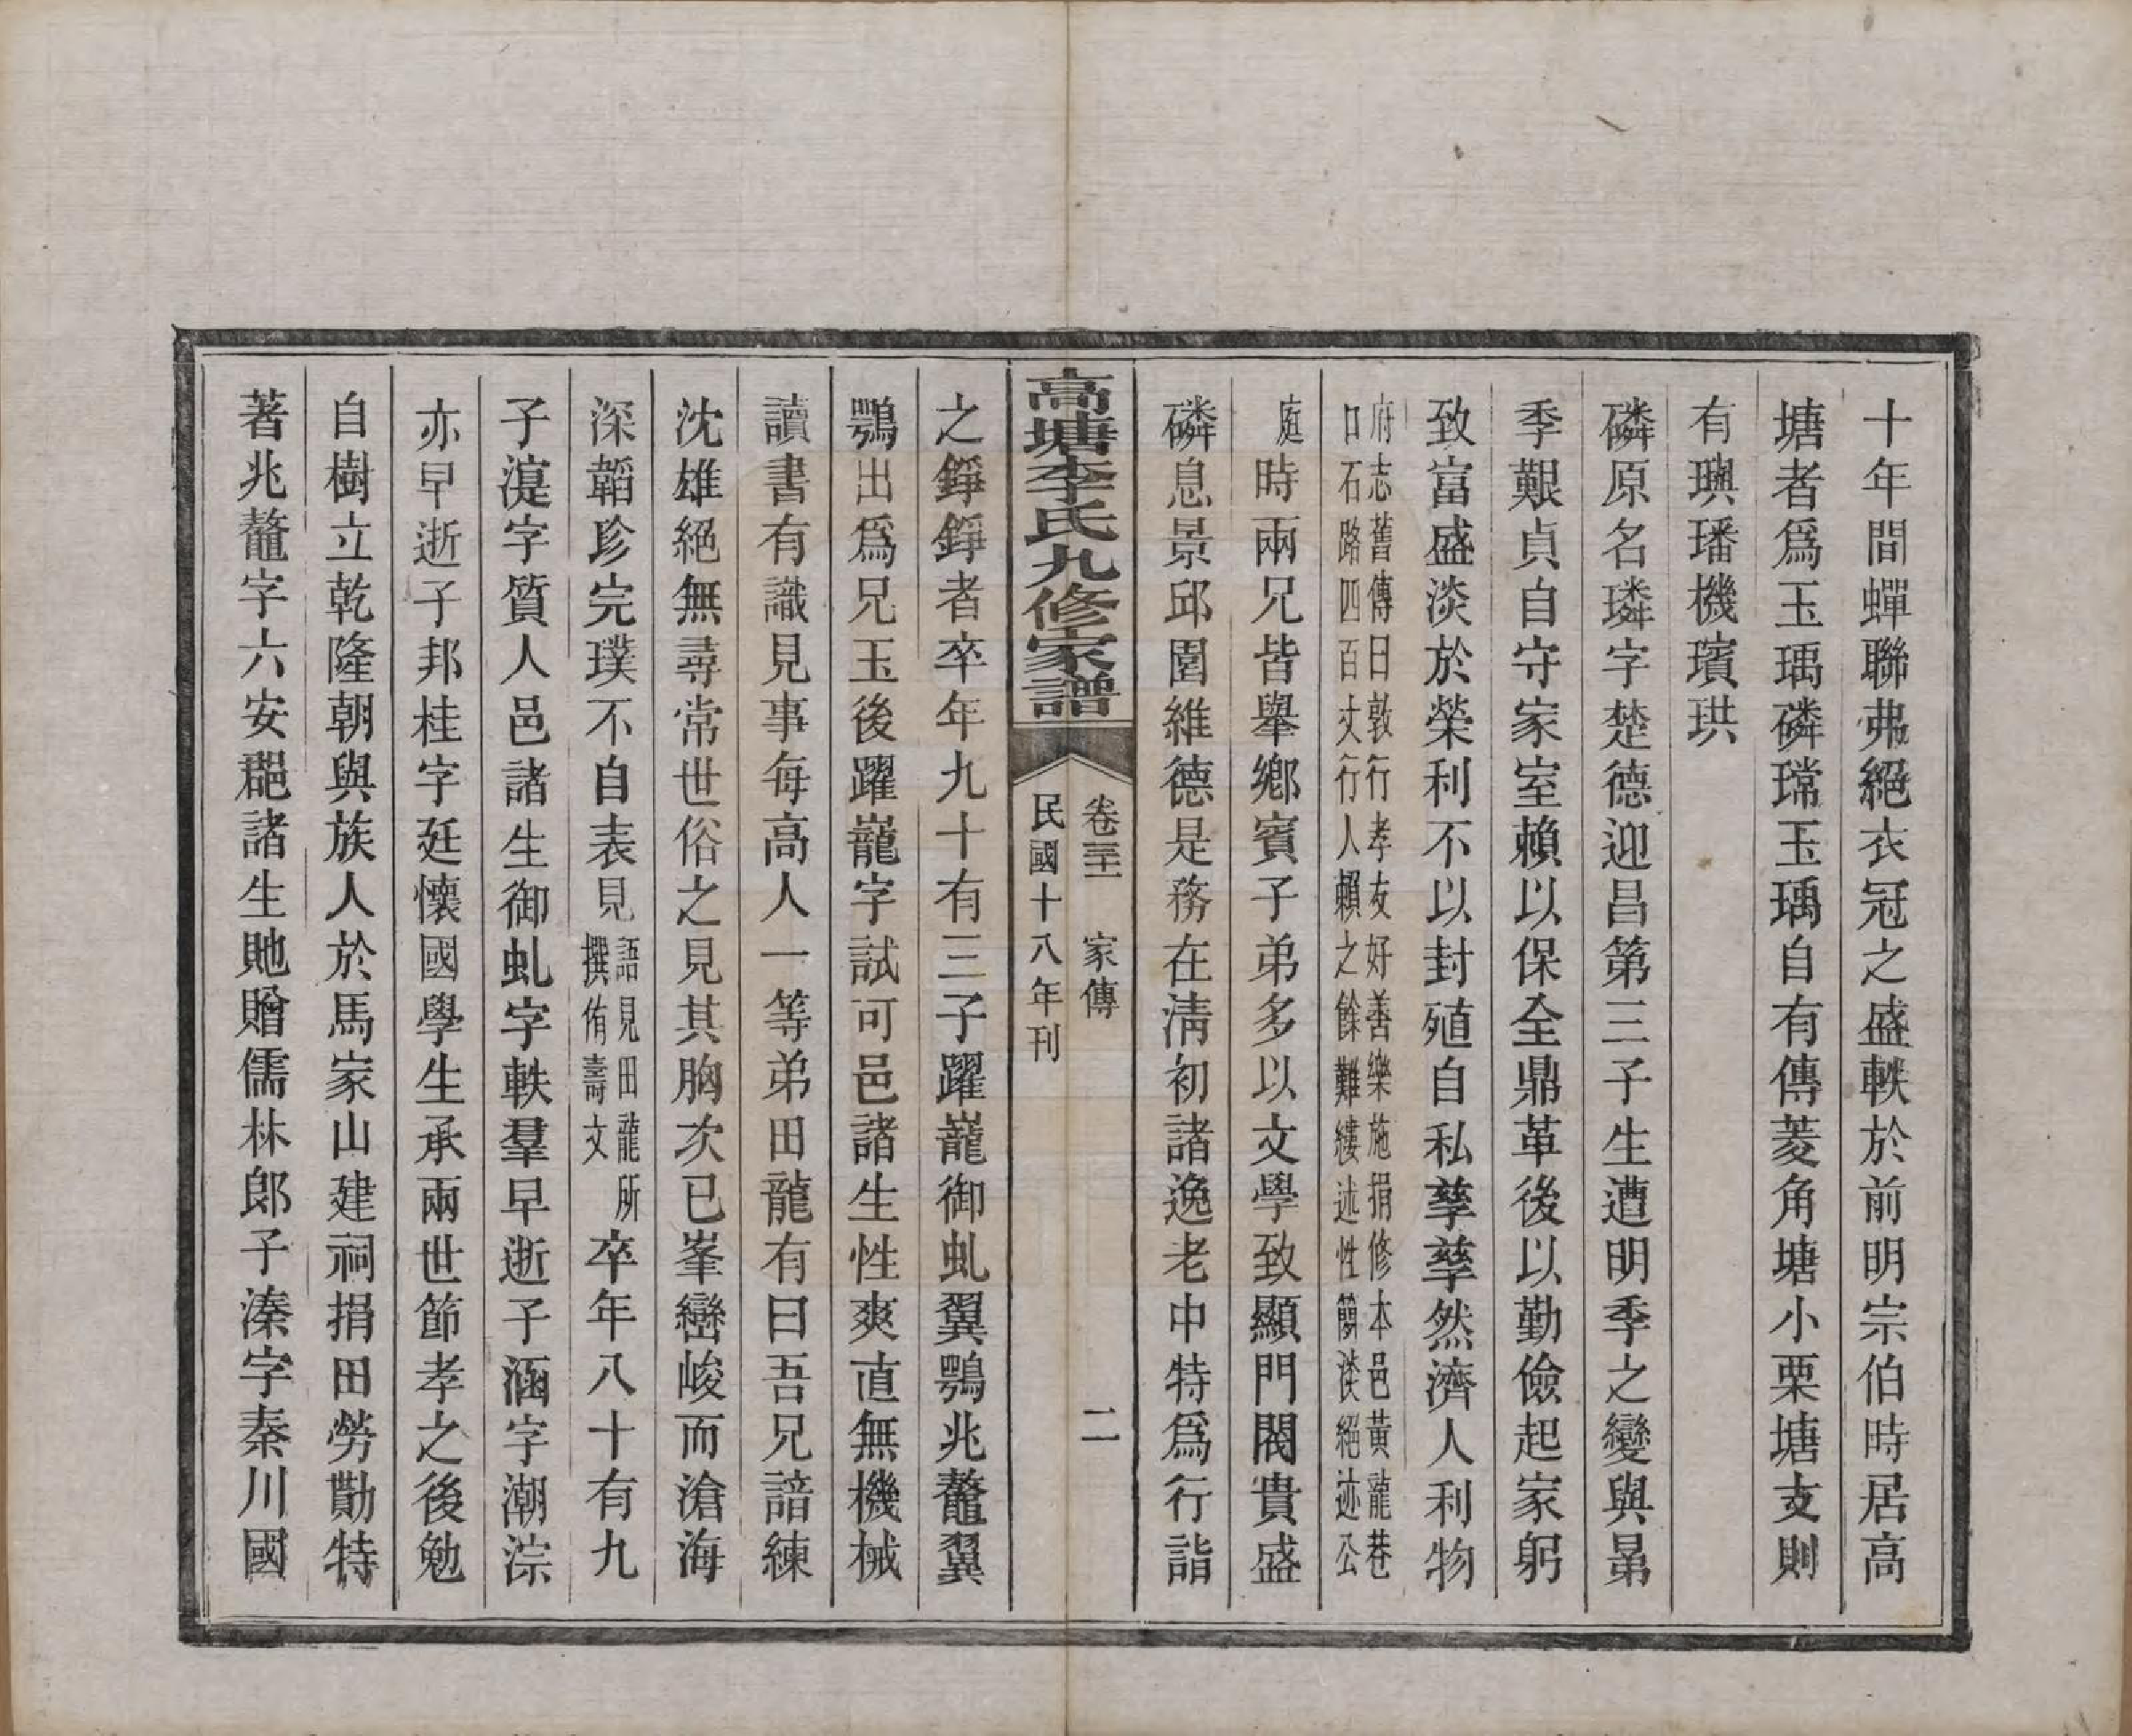 十年間蟬聯弗絕衣冠之盛軼於前明宗伯時居高
塘者爲玉瑀磷瑺玉瑀自有傳菱角塘小栗塘支則
有璵璠機璸珙
磷原名璘字楚德迎昌第三子生遭明季之變與晜
季艱貞自守家室賴以保全鼎革後以勤儉起家躬
致富盛淡於榮利不以封殖自私孳孳然濟人利物
府志舊傳曰敦行孝友好善樂施捐修本邑黃龍巷
口石路四百丈行人賴之餘難縷述性簡淡絕迹公
庭
時兩兄皆舉鄉賓子弟多以文學致顯門閥貴盛
磷息景邱園維德是務在淸初諸逸老中特爲行詣
高塘李氏九修家譜
卷三十一 家傳 二
民國十八年刊
之錚錚者卒年九十有三子躍巃御虬翼鶚兆鼇翼
鶚出爲兄玉後躍巃字試可邑諸生性爽直無機械
讀書有識見事每高人一等弟田龍有曰吾兄諳練
沈雄絕無尋常世俗之見其胸次已峯巒峻而滄海
深韜珍完璞不自表見
語見田龍所
撰侑壽文
卒年八十有九
子湜字質人邑諸生御虬字軼羣早逝子涵字潮淙
亦早逝子邦桂字廷懷國學生承兩世節孝之後勉
自樹立乾隆朝與族人於馬家山建祠捐田勞勩特
著兆鼇字六安郡諸生貤贈儒林郎子溱字秦川國